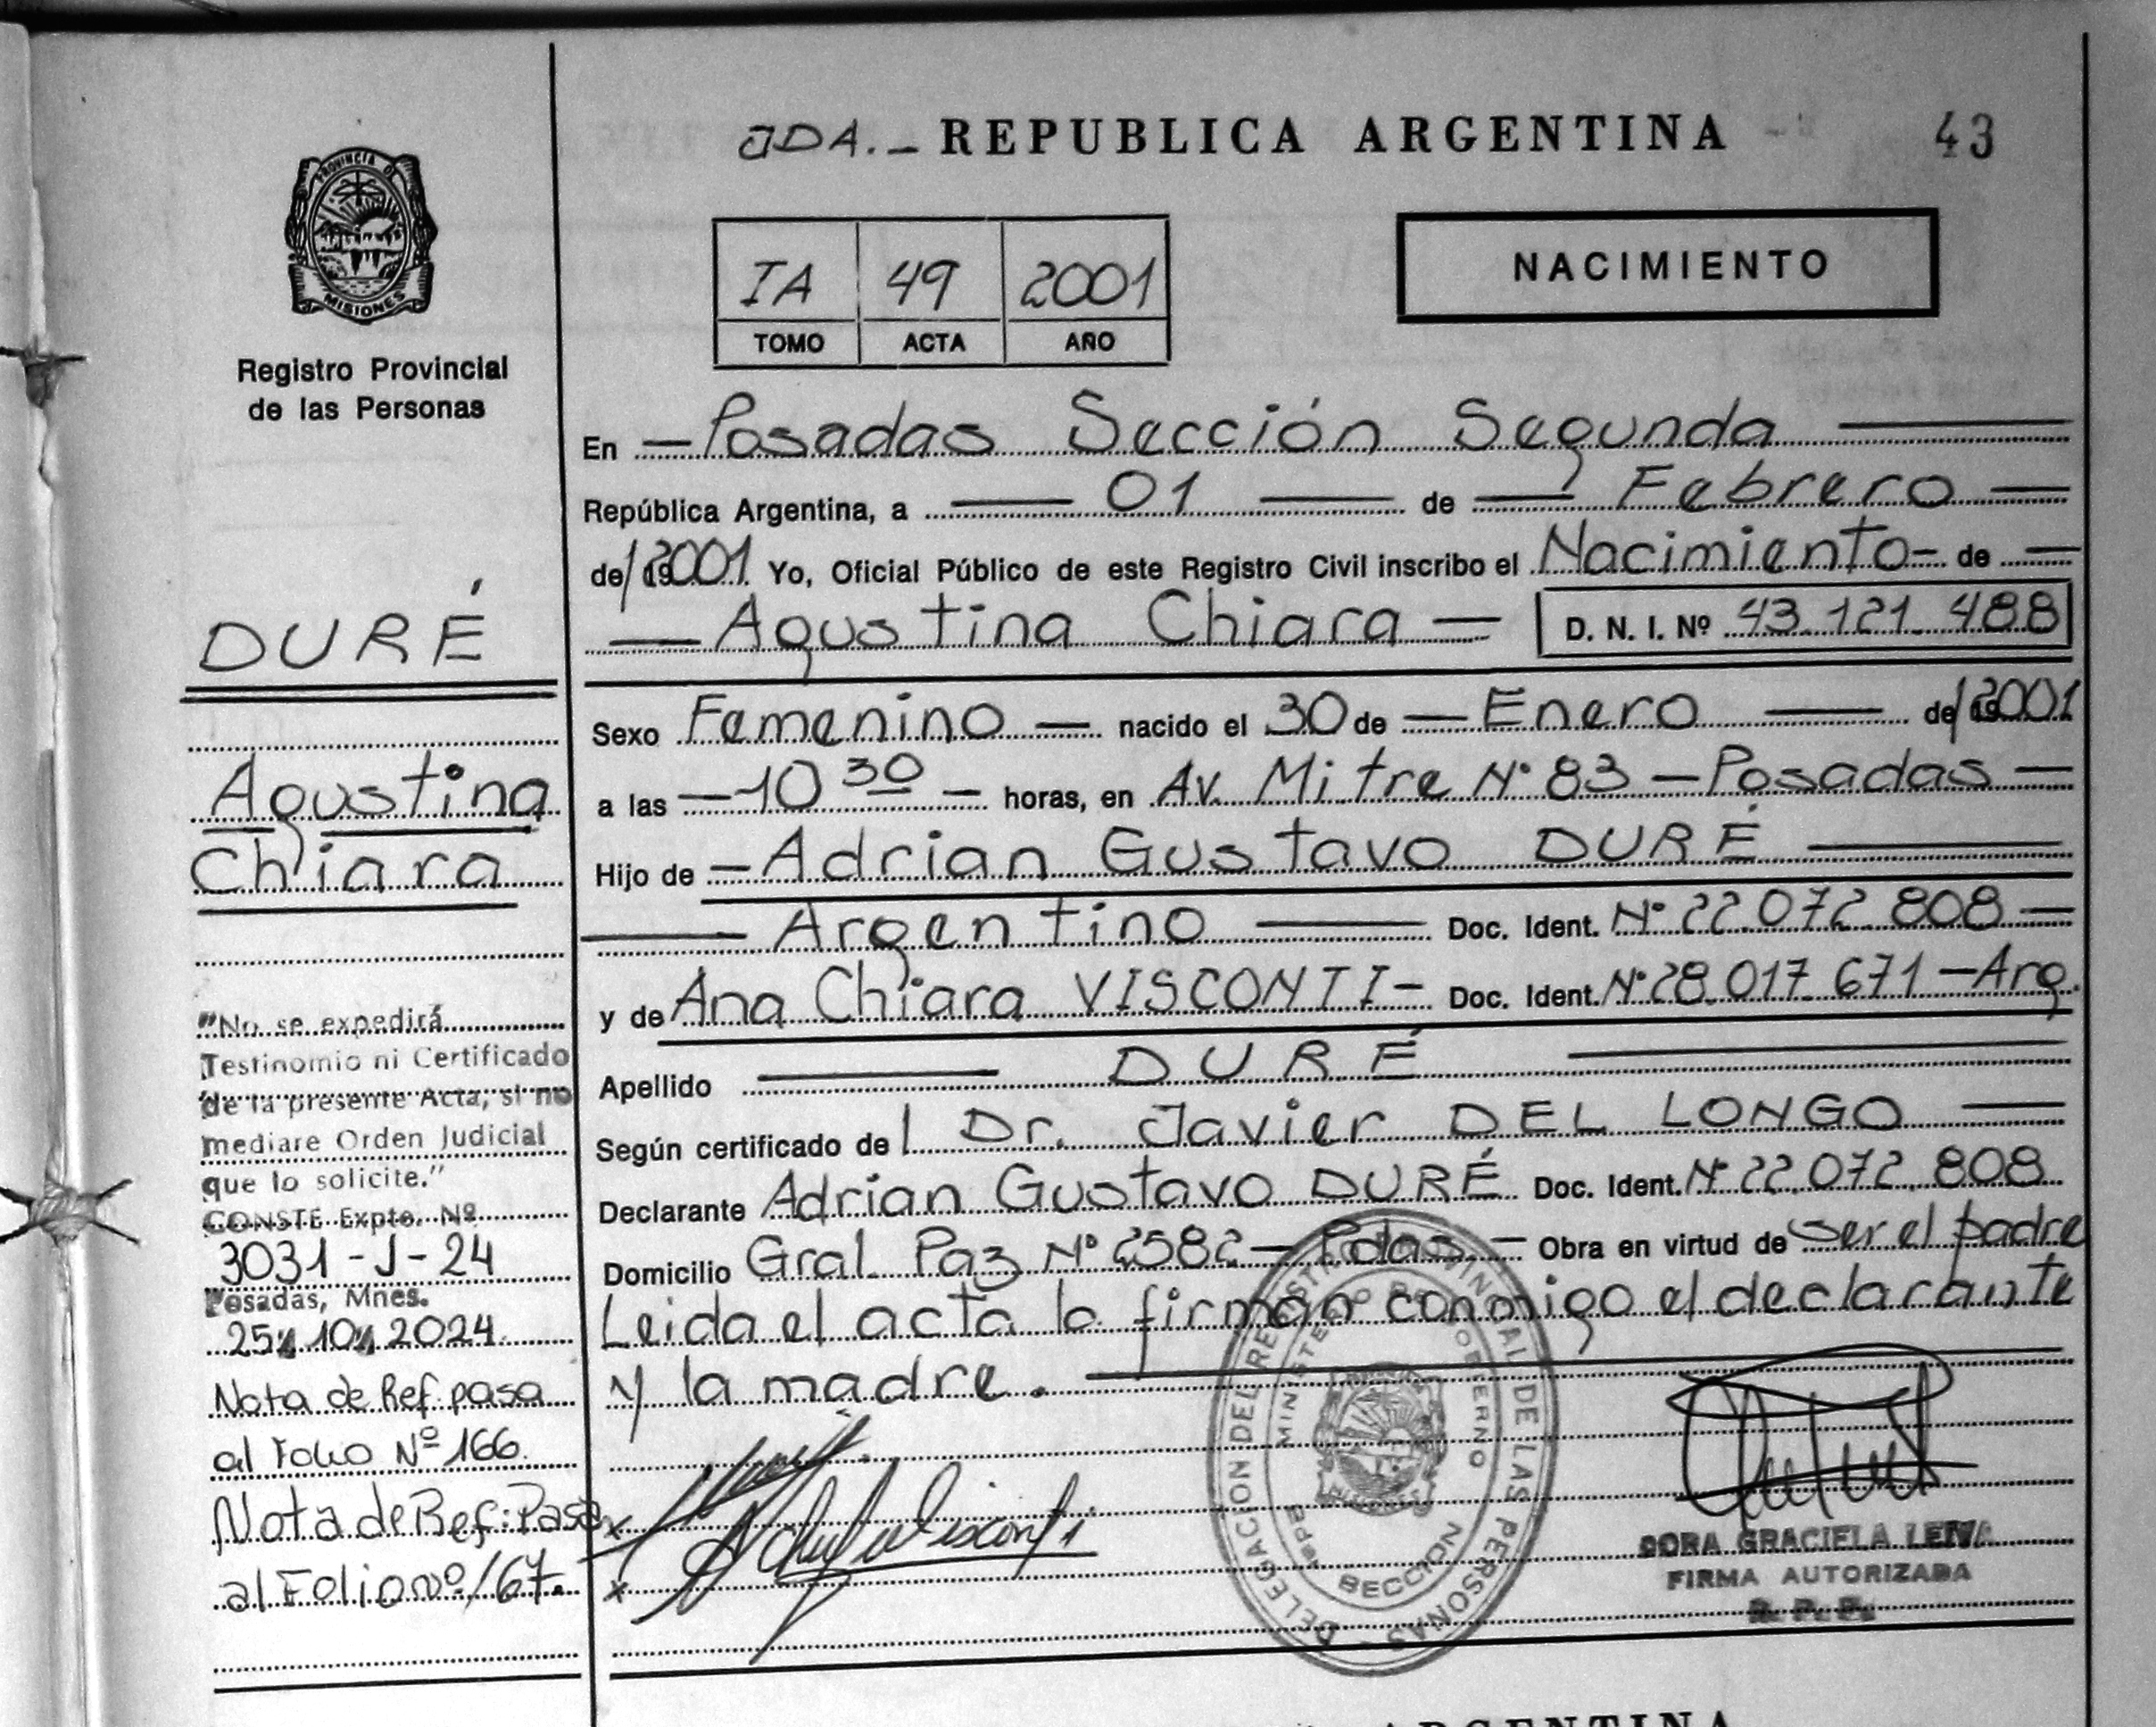 JDA.- REPUBLICA ARGENTINA 43
PROVINCIA DE
MISIONES
Registro Provincial
de las Personas
IA 49 2001
TOMO ACTA AÑO
NACIMIENTO
En Posadas Sección Segunda
República Argentina, a 01 de Febrero
de 2001 Yo, Oficial Público de este Registro Civil inscribo el Nacimiento de
Agustina Chiara D. N. I. Nº 43.121.488
Sexo Femenino nacido el 30 de Enero de 2001
a las 10 30 horas, en Av. Mitre Nº 83 - Posadas
Hijo de Adrian Gustavo DURÉ
Argentino Doc. Ident. Nº 22.072.808
y de Ana Chiara VISCONTI - Doc. Ident. Nº 28.017.671 - Arg.
Apellido DURÉ
Según certificado del Dr. Javier DEL LONGO
Declarante Adrian Gustavo DURÉ Doc. Ident. Nº 22.072.808
Domicilio Gral. Paz Nº 2582 - Pdas. - Obra en virtud de ser el padre
Leida el acta la firman conmigo el declarante
y la madre.
DURÉ
Agustina
Chiara
"No se expedirá
Testinomio ni Certificado
de la presente Acta, si no
mediare Orden Judicial
que lo solicite."
CONSTE Expte. Nº
3031-J-24
Posadas, Mnes.
25 10 2024
Nota de Ref. pasa
al Folio Nº 166.
Nota de Ref: Pasa
al Folio nº 167.
DELEGACION DEL REGISTRO PROVINCIAL DE LAS PERSONAS
MINISTERIO DE GOBIERNO
SECCION
DORA GRACIELA LEIVA
FIRMA AUTORIZADA
R. P. P.
ARGENTINA